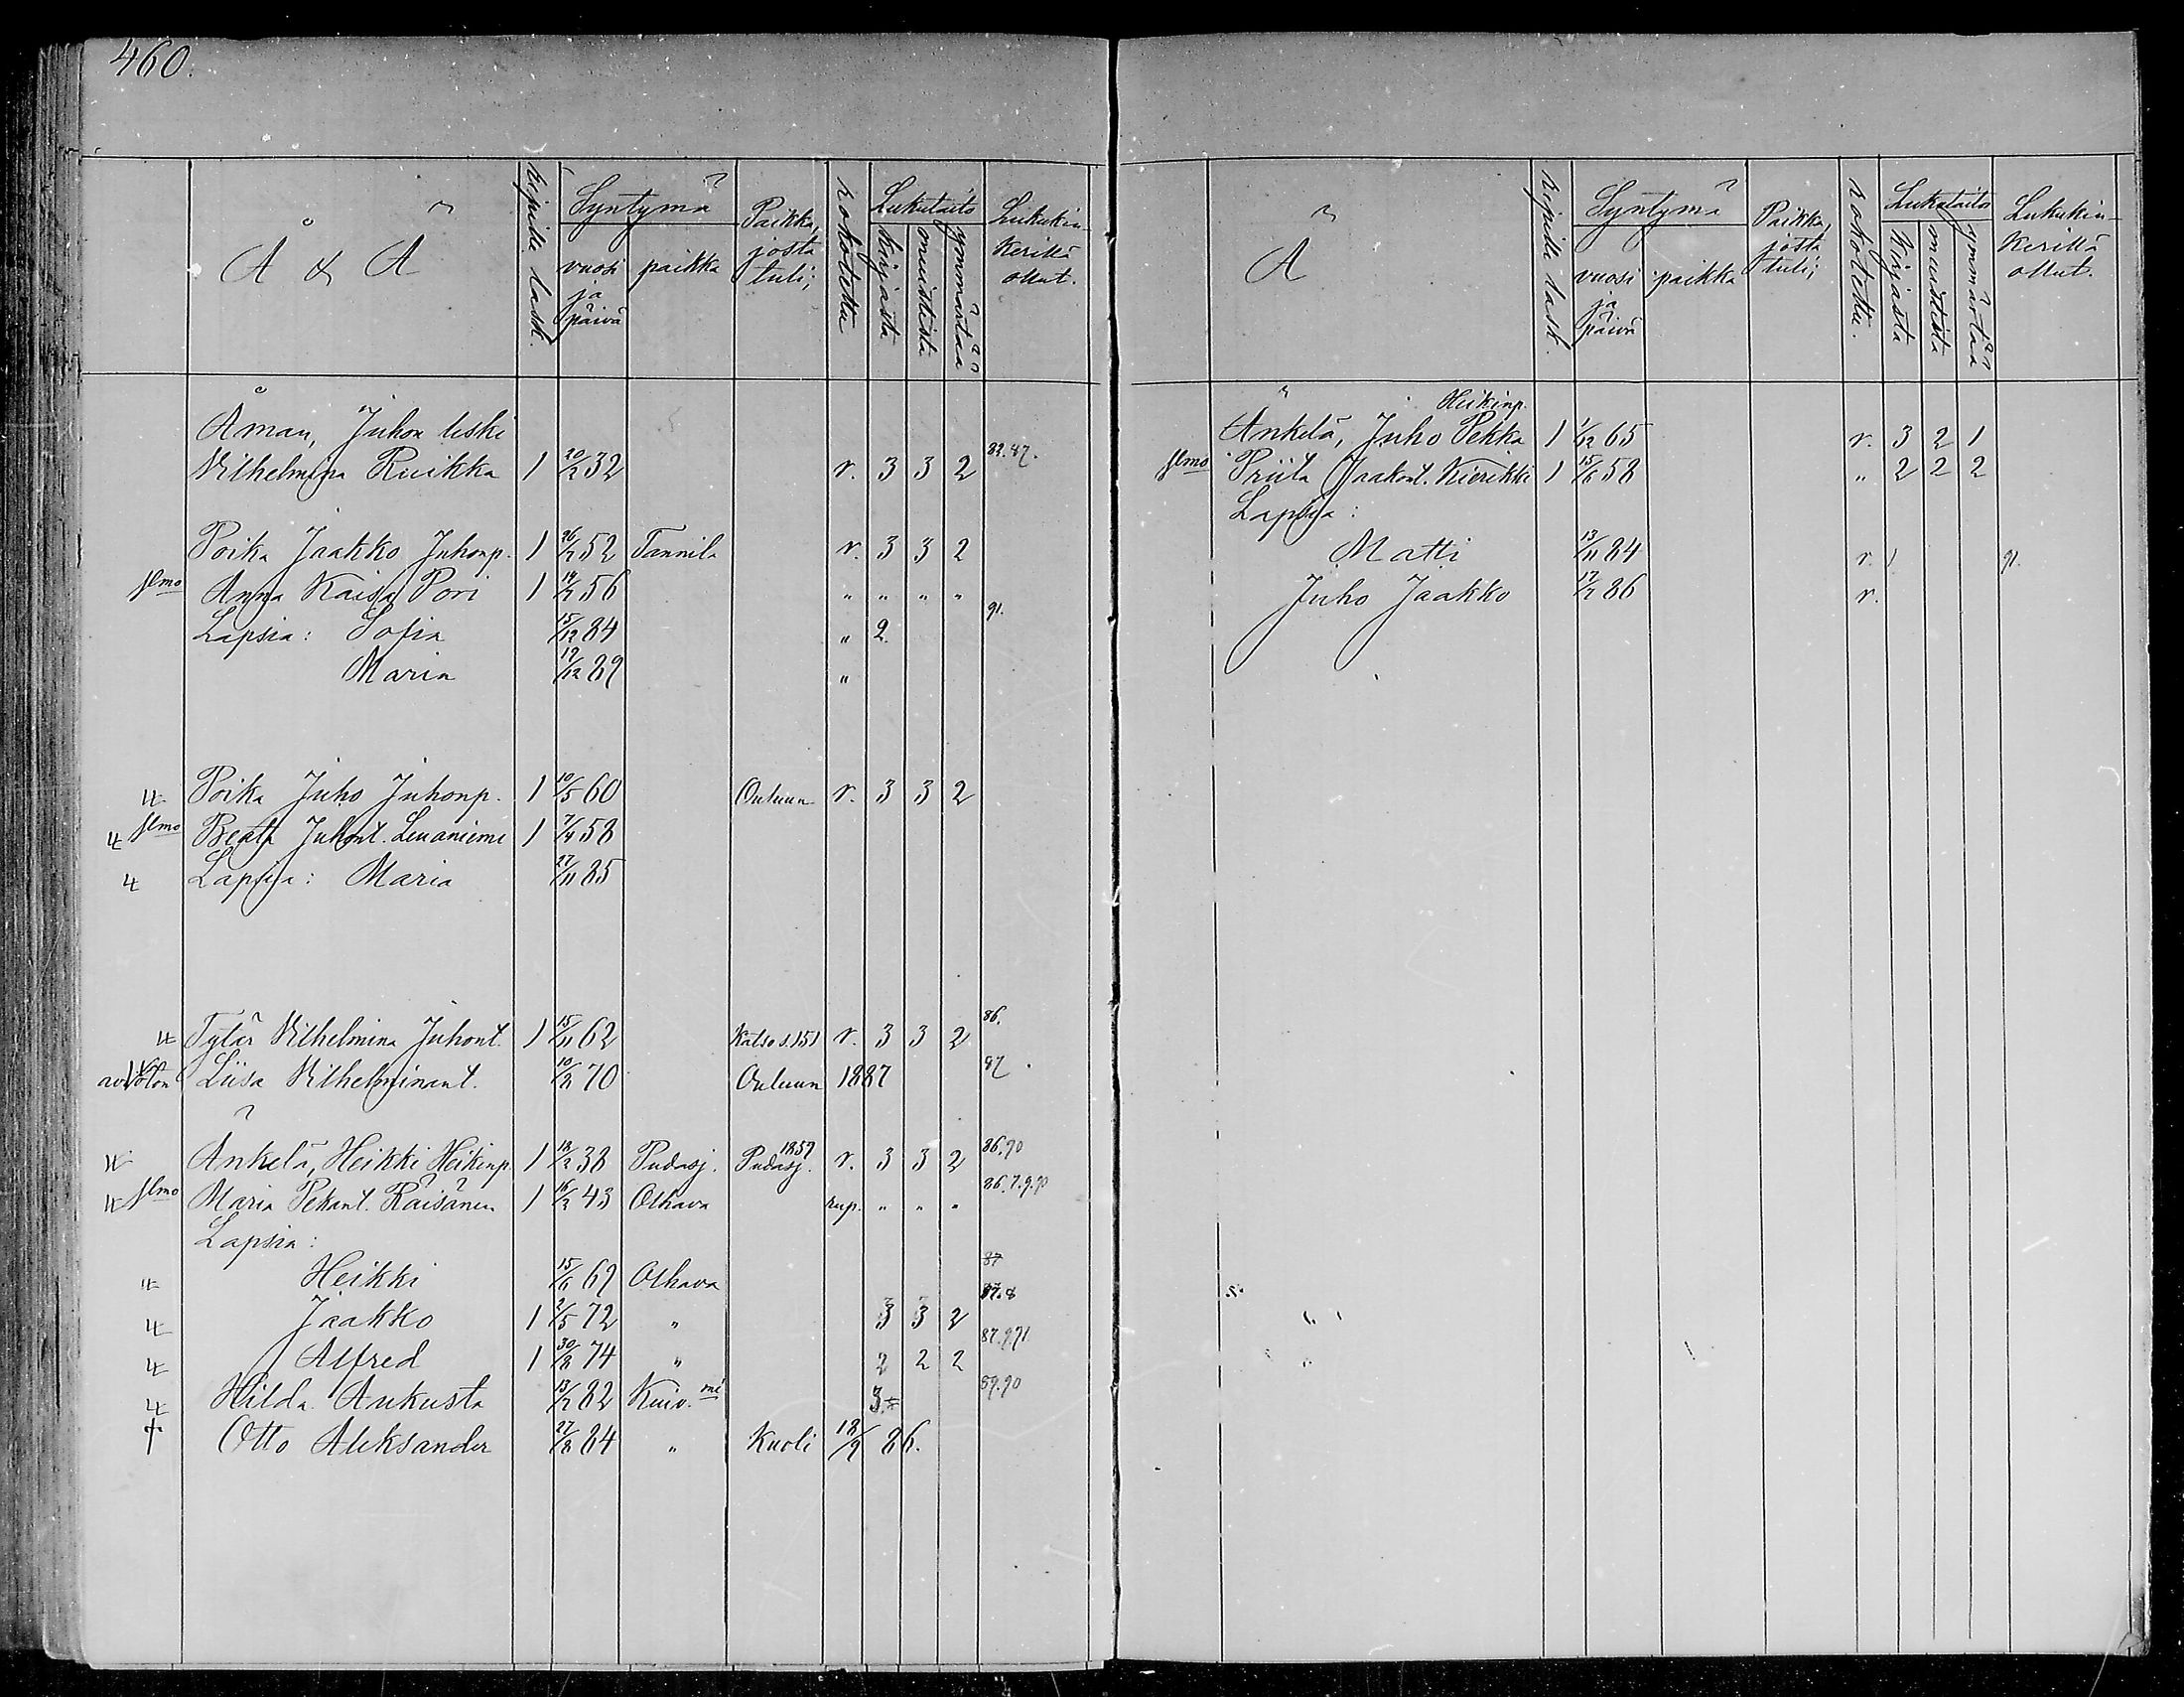 460.
Å & Ä
ripille lask.
Syntymä
vuosi ja päivä
paikka
Paikka, josta tuli;
rokotettu
Lukutaito
kirjasta
muistista
ymmärtää
Lukukin-
kerillä
ollut.
Åman, Juhon leski
Vilhelmina Ruikka 1 20/2 32 r. 3 3 2
Poika Jaakko Juhonp. 1 26/7 52 Tannila r. 3 3 2
Anna Kaisa Pori 1 14/7 56 " " " "
Lapsia: Sofia 15/12 84 " 2 91.
Maria 19/12 89 "
Poika Juho Juhonp. 1 10/5 60 Ouluun r. 3 3 2
Beata Juhont. Leuaniemi 1 7/4 58
Lapsia: Maria 27/11 85
Tytär Vilhelmina Juhont. 1 15/11 62 Katso s. 151 r. 3 3 2 86.
Liisa Vilhelminant. 10/8 70 Ouluun 1887 87.
Änkelä, Heikki Heikinp. 1 18/2 38 Pudasj. Pudasj. 1859 r. 3 3 2 86.90
Maria Pekant. Räisänen 1 16/2 43 Olhava rup. " " " 86.7.9.90
Lapsia:
Heikki 15/6 69 Olhava 87
Jaakko 1 2/5 72 " 3 3 2 87.8
Alfred 1 30/8 74 " 2 2 2 87.9.91
Hilda Aukusta 13/7 82 Kuiv. mi 3 89.90
† Otto Aleksander 27/8 84 " Kuoli 18/9 86.
Ä
ripille lask.
Syntymä
vuosi ja päivä
paikka
Paikka, josta tuli;
rokotettu.
Lukutaito
kirjasta
muistista
ymmärtää
Lukukin-
kerillä
ollut.
Heikinp.
Änkelä, Juho Pekka 1 1/12 65 r. 3 2 1
Priita Jaakont. Kierikki 1 15/6 58 " 2 2 2
Lapsia:
Matti 13/11 84 r. 1 91.
Juho Jaakko 17/7 86 r.